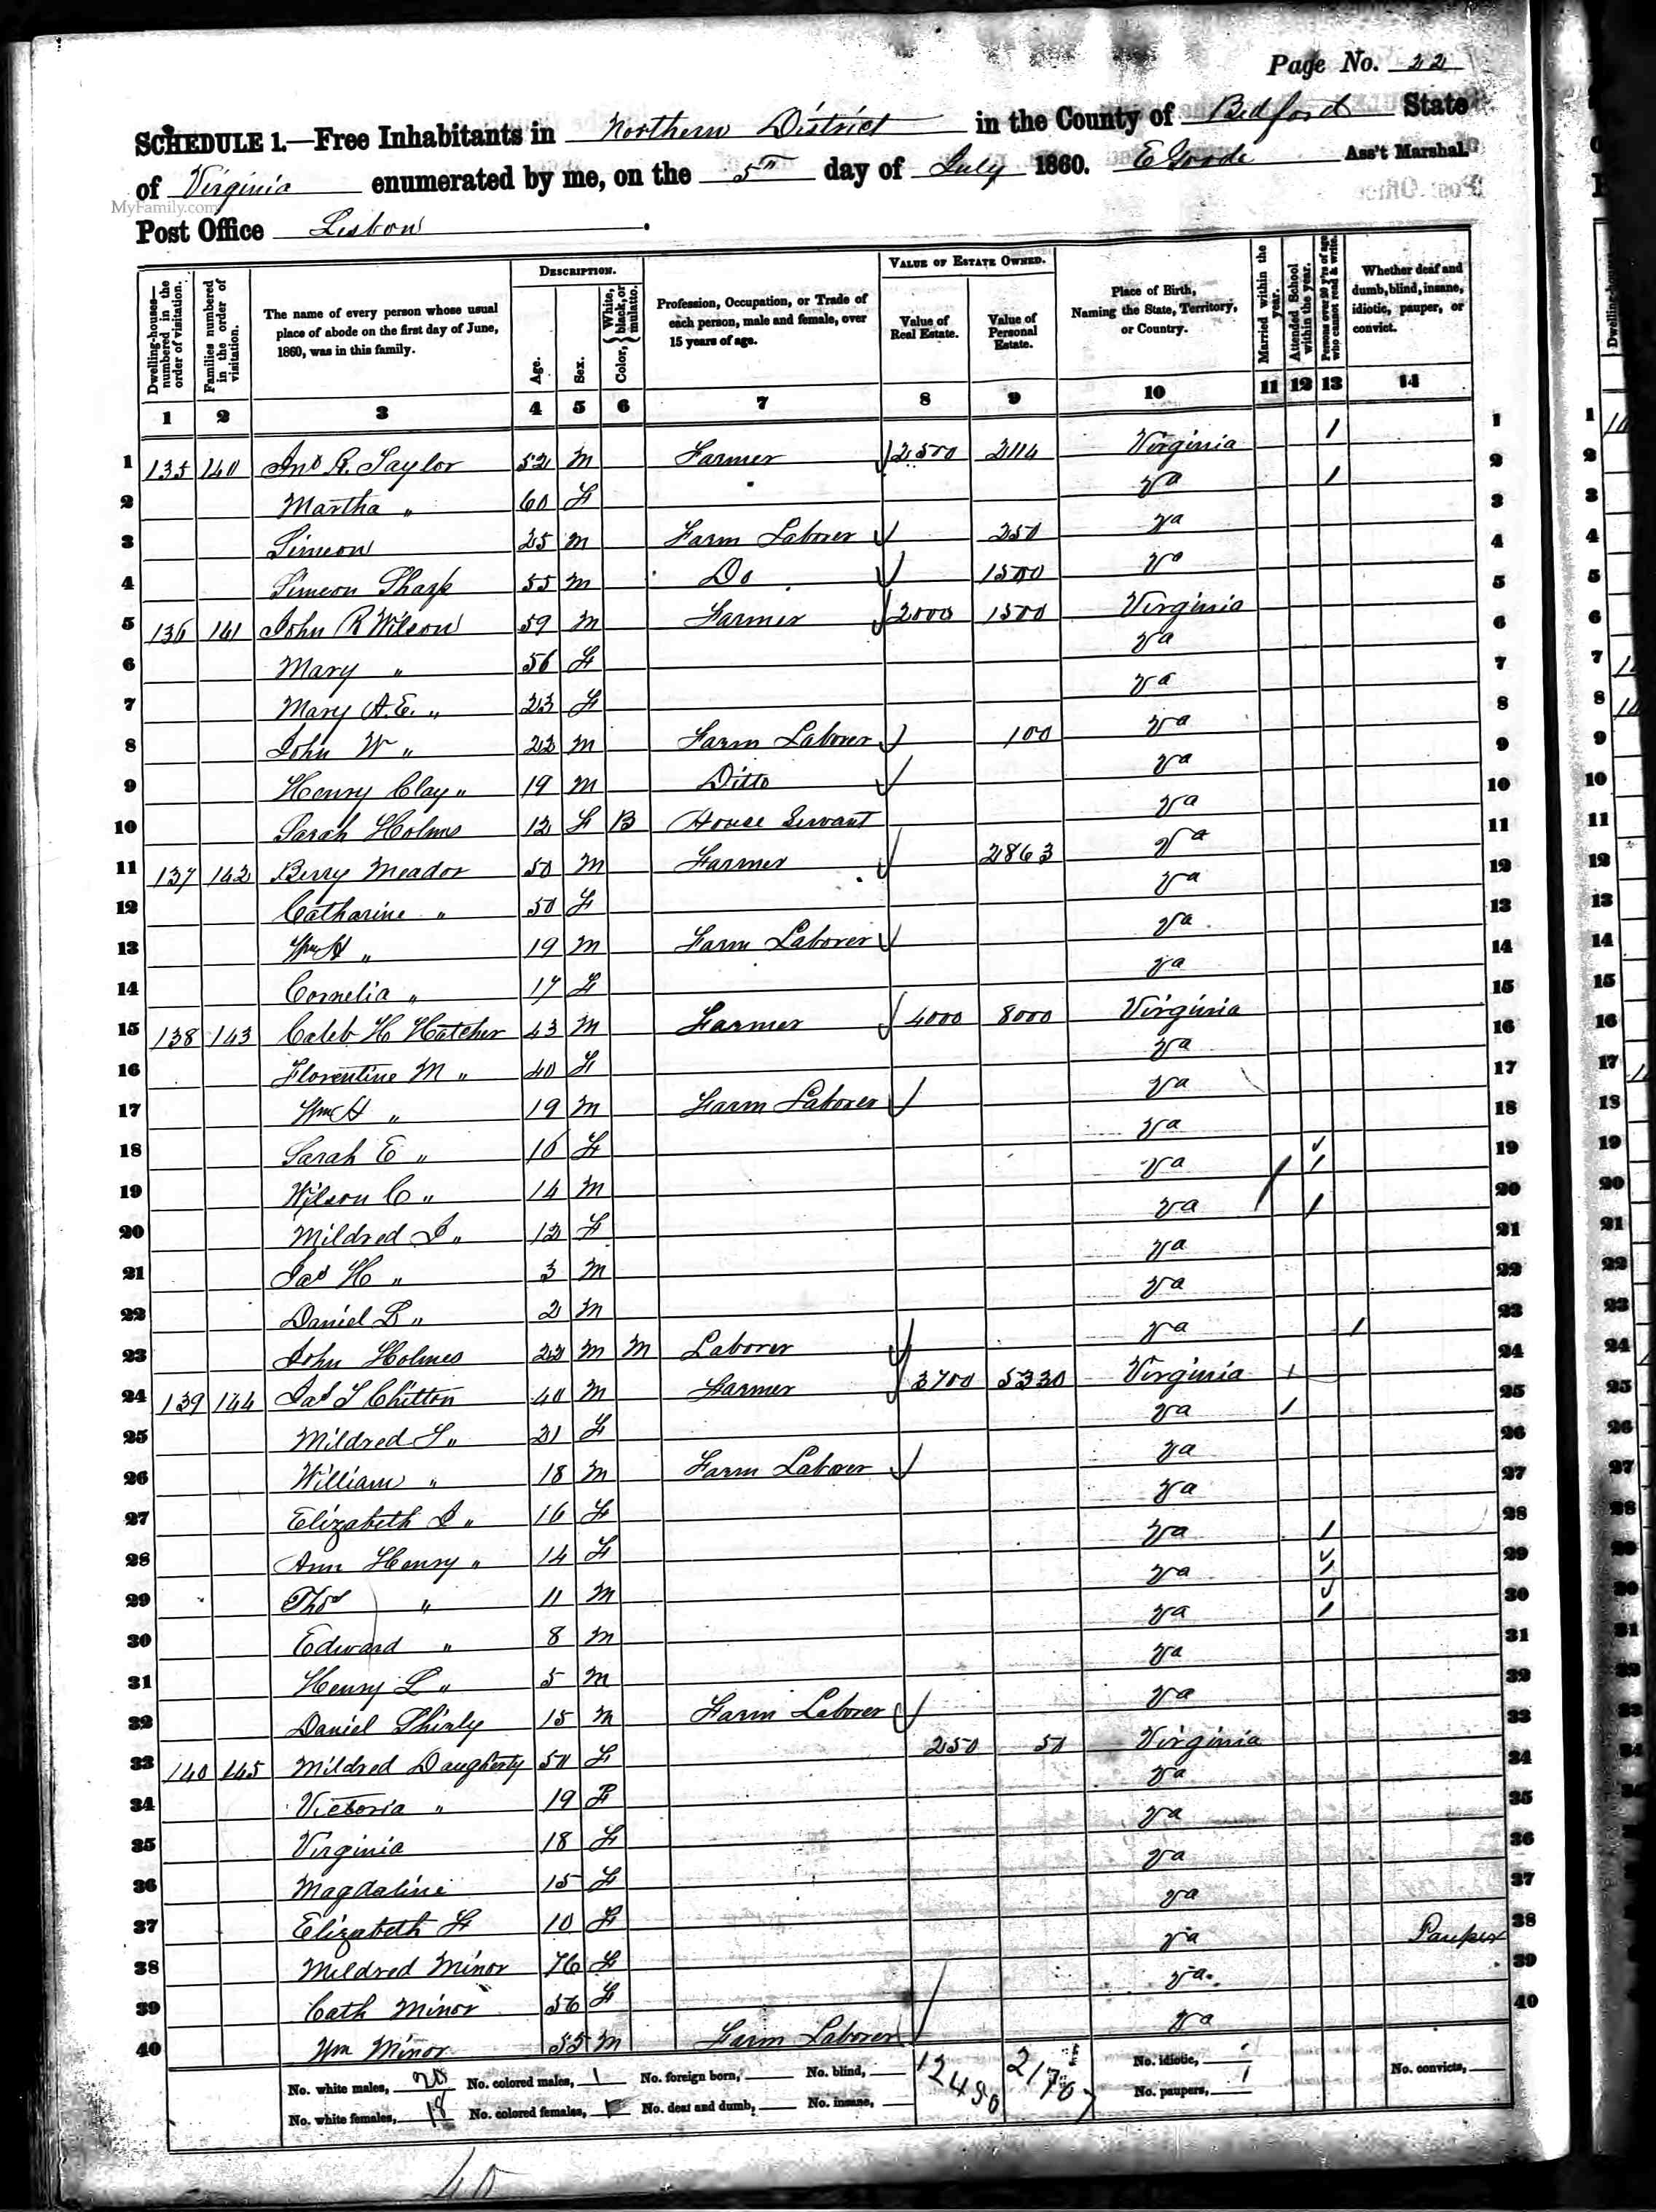 Page No. 22
SCHEDULE 1.—Free Inhabitants in Northern District in the County of Bedford State
of Virginia enumerated by me, on the 5th day of July 1860. E Goode Ass't Marshal.
MyFamily.com
Post Office Lisbon.
Dwelling-houses—numbered in the order of visitation. Families numbered in the order of visitation. The name of every person whose usual place of abode on the first day of June, 1860, was in this family. DESCRIPTION. Age. Sex. Color, {White, black, or mulatto. Profession, Occupation, or Trade of each person, male and female, over 15 years of age. VALUE OF ESTATE OWNED. Value of Real Estate. Value of Personal Estate. Place of Birth, Naming the State, Territory, or Country. Married within the year. Attended School within the year. Persons over 20 y'rs of age who cannot read & write. Whether deaf and dumb, blind, insane, idiotic, pauper, or convict.
1 2 3 4 5 6 7 8 9 10 11 12 13 14
1 135 140 Jno R. Taylor 52 M Farmer 2500 2114 Virginia / 1
2 Martha " 60 F Va / 2
3 Simeon 25 M Farm Laborer 250 Va 3
4 Simeon Tharp 55 M Do 1500 Va 4
5 136 141 John R Wilson 59 M Farmer 2000 1500 Virginia 5
6 Mary " 56 F Va 6
7 Mary A. E. " 23 F Va 7
8 John W " 22 M Farm Laborer 100 Va 8
9 Henry Clay " 19 M Ditto Va 9
10 Sarah Holms 12 F B House Servant Va 10
11 137 142 Berry Meador 50 M Farmer 2863 Va 11
12 Catharine " 50 F Va 12
13 Wm H " 19 M Farm Laborer Va 13
14 Cornelia " 17 F Va 14
15 138 143 Caleb H Hatcher 43 M Farmer 4000 8000 Virginia 15
16 Florentine M " 40 F Va 16
17 Wm H " 19 M Farm Laborer Va 17
18 Sarah E " 16 F Va 18
19 Wilson C " 14 M Va / 19
20 Mildred J " 12 F Va / 20
21 Jas H " 3 M Va 21
22 Daniel B " 2 M Va 22
23 John Holmes 22 M M Laborer Va / 23
24 139 144 Jas T Chilton 40 M Farmer 3700 5330 Virginia / 24
25 Mildred S " 21 F Va / 25
26 William " 18 M Farm Laborer Va 26
27 Elizabeth J " 16 F Va 27
28 Ann Henry " 14 F Va / 28
29 Thos " 11 M Va / 29
30 Edward " 8 M Va / 30
31 Henry L " 5 M Va 31
32 Daniel 15 M Farm Laborer Va 32
33 140 145 Mildred Daugherty 50 F 250 50 Virginia 33
34 Victoria " 19 F Va 34
35 Virginia 18 F Va 35
36 Magdaline 15 F Va 36
37 Elizabeth F 10 F Va 37
38 Mildred Minor 76 F Va Pauper 38
39 Cath Minor 56 F Va 39
40 Wm Minor 55 M Farm Laborer Va 40
No. white males, 20 No. colored males, 1 No. foreign born, No. blind, 12450 No. idiotic, No. convicts,
No. white females, 18 No. colored females, No. deaf and dumb, No. insane, No. paupers, 1
40